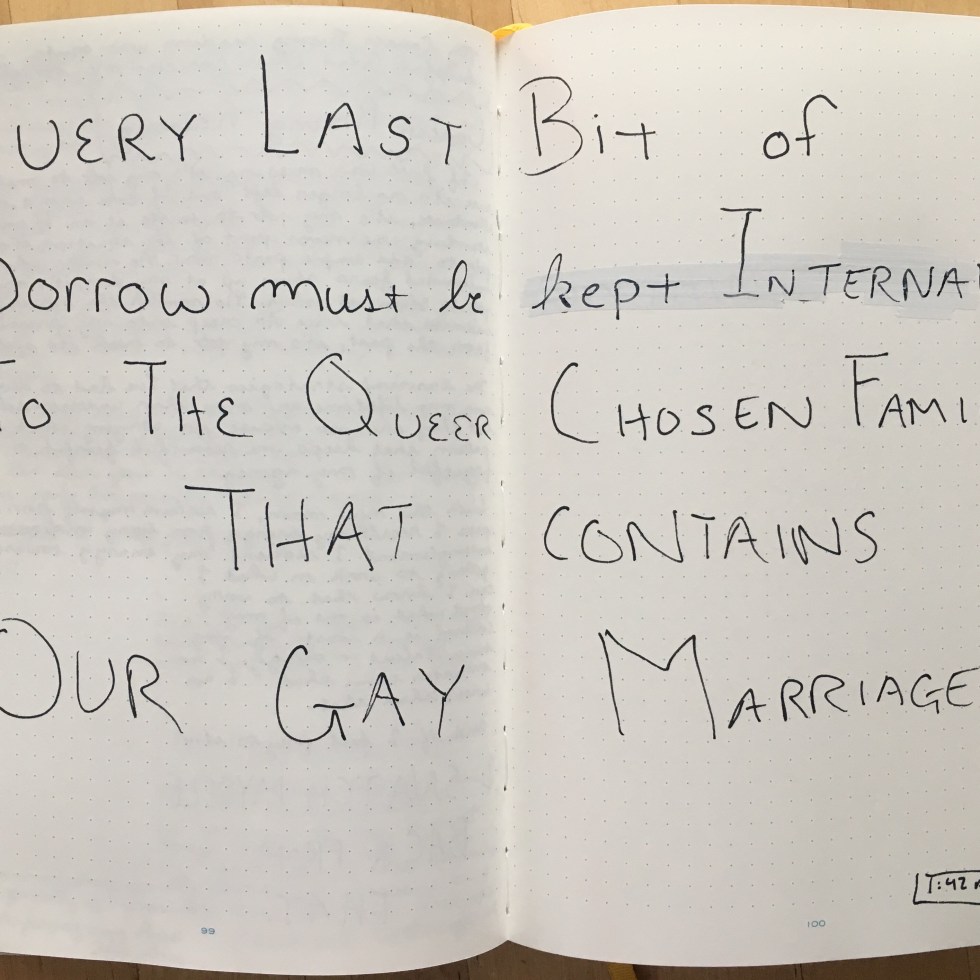 VERY LAST Bit of
Dorrow must be kept INTERNAL
TO THE QUEER CHOSEN FAMI
THAT CONTAINS
OUR GAY MARRIAGE
99
100